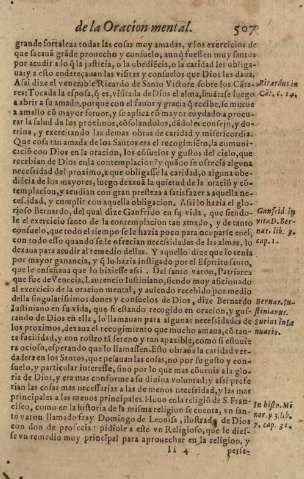 de la Oracion mental. 507
grande fortaleza todas las cosas muy amadas, y los exercicios de
que sacauā grāde prouecho y consuelo, aunq̄ fuessen muy santos
por acudir a lo q̄ la justicia, o la obediēcia, o la caridad les obliga-
ua: y a esto endereçauan las visitas y consuelos que Dios les daua.
Asi dize el venerable Ricardo de Santo Victore sobre los Cāta-
res: Tocada la esposa, q̄ es, visitada de Dios el alma, leuātase luego
a abrir a su amado, porque con el fauor y gracia q̄ recibe, se mueue
a amallo cō mayor feruor, y se aplica cō mayor cuydado a procu-
rar la salud de los proximos, cōsolandolos, cō consejo, y do-
trina, y exercitando las demas obras de caridad y misericordia.
Que cosa tan amada de los Santos era el recogimiēto, la comuni-
cació con Dios en la oracion, los cōsuelos y gustos del cielo, que
recebian de Dios en la contemplacion? y quādo se ofrecia alguna
necessidad del proximo, a que obligasse la caridad, o alguna obe-
diēcia de los mayores, luego dexauā la quietud de la oraciō y cō-
templacion, y acudian con gran presteza a satisfazer a aquella ne-
cessidad, y cumplir con aquella obligacion. Asi lo hazia el glo-
rioso Bernardo, del qual dize Ganfrido en su vida, que siendo-
le el exercicio santo de la contemplacion tan amado, y de tanto
consuelo, que todo el tiempo se le hazia poco para ocuparse en el,
con todo esso quando se le ofrecian necessidades de las almas, lo
dexaua para acudir al remedio dellas. Y aquello dize que lo tenia
por mayor ganancia, y q̄ lo hazia instigado por el Espiritu santo,
que le enseñaua que lo hiziesse asi. Del santo varon, Patriarca
que fue de Venecia, Laurencio Iustiniano, siendo muy aficionado
al exercicio de la oracion mental, y auiendo recebido por medio
della singularissimos dones y consuelos de Dios, dize Bernardo
Iustiniano en su vida, que si estando recogido en oracion, y gus-
tando de Dios en ella, lo llamauan para algunas necessidades de
los proximos, dexaua el recogimiento que mucho amaua, cō tan-
ta facilidad, y con rostro tā sereno y tan apazible, como si estouie-
ra ocioso, esperando que lo llamassen. Esto obraua la caridad ver-
dadera en los Santos, que pesauan las cosas, no por su gusto y con-
suelo, y particular interesse, sino por lo que mas cōuenia a la glo-
ria de Dios, y era mas conforme a su diuina voluntad: y asi prefe-
rian las cosas mas necessarias a las de menos necessidad, y las mas
principales a las menos principales. Huuo en la religiō de S. Fran-
cisco, como en la historia de la misma religion se cuenta, vn san-
to varon llamado fray Domingo de Leonissa, ilustrado de Dios
con don de profecia: pidiole a este vn Religioso, que le dies-
se vn remedio muy principal para aprouechar en la religion, y
Ii 4
Ricardus in
Cāt. c. 14.
Ganfrid. in
vita D. Ber-
nar. lib. 3.
cap. 1.
Bernar. Ius-
tinianus in